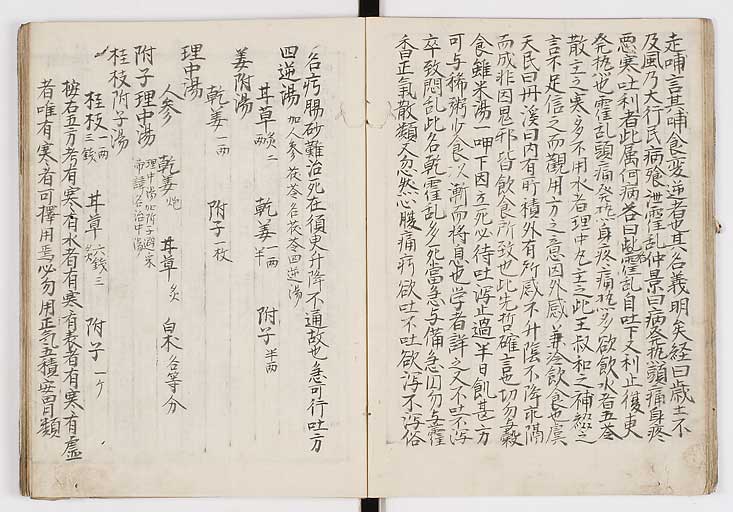 走哺言其哺食変逆者也其名義明矣経曰歳土不
及風乃大行民病飱泄霍乱仲景曰病発熱頭痛身疼
悪寒吐利者此属何病答曰此名霍乱自吐下又利止復更
発熱也霍乱頭痛発熱身疼痛熱多欲飲水者五苓
散主之寒多不用水者理中丸主之此王叔和之補綴之
言不足信之而観用方之意因外感兼冷飲食也虞
天民曰丹溪曰内有所積外有所感不升陰不降乖隔
而成非因鬼邪皆飲食所致也此先哲確言也切勿与穀
食雖米湯一呷下因立死必待吐瀉止過半日飢甚方
可与稀粥少食以漸而将息也学者詳之又不吐不瀉
卒致悶乱此名乾霍乱多死当急与備急因勿与藿
香正氣散類又忽然心腹痛痛欲吐不吐欲瀉不瀉俗
名痧腸砂難治死在須臾升降不通故也急可行吐方
四逆湯 加人参茯苓名茯苓四逆湯
甘草 二両 乾姜 一両半 附子 半両
姜附湯
乾姜 一両 附子 一枚
理中湯
人参 乾姜 炮 甘草 炙 白朮 各等分
附子理中湯 理中湯加附子
桂枝附子湯
桂枝 一両三銭 甘草 六銭三 附子 一ケ
按右五方考有寒有水者有寒有表者有寒有虚
者唯有寒者可擇用焉必勿用正気五積安胃類